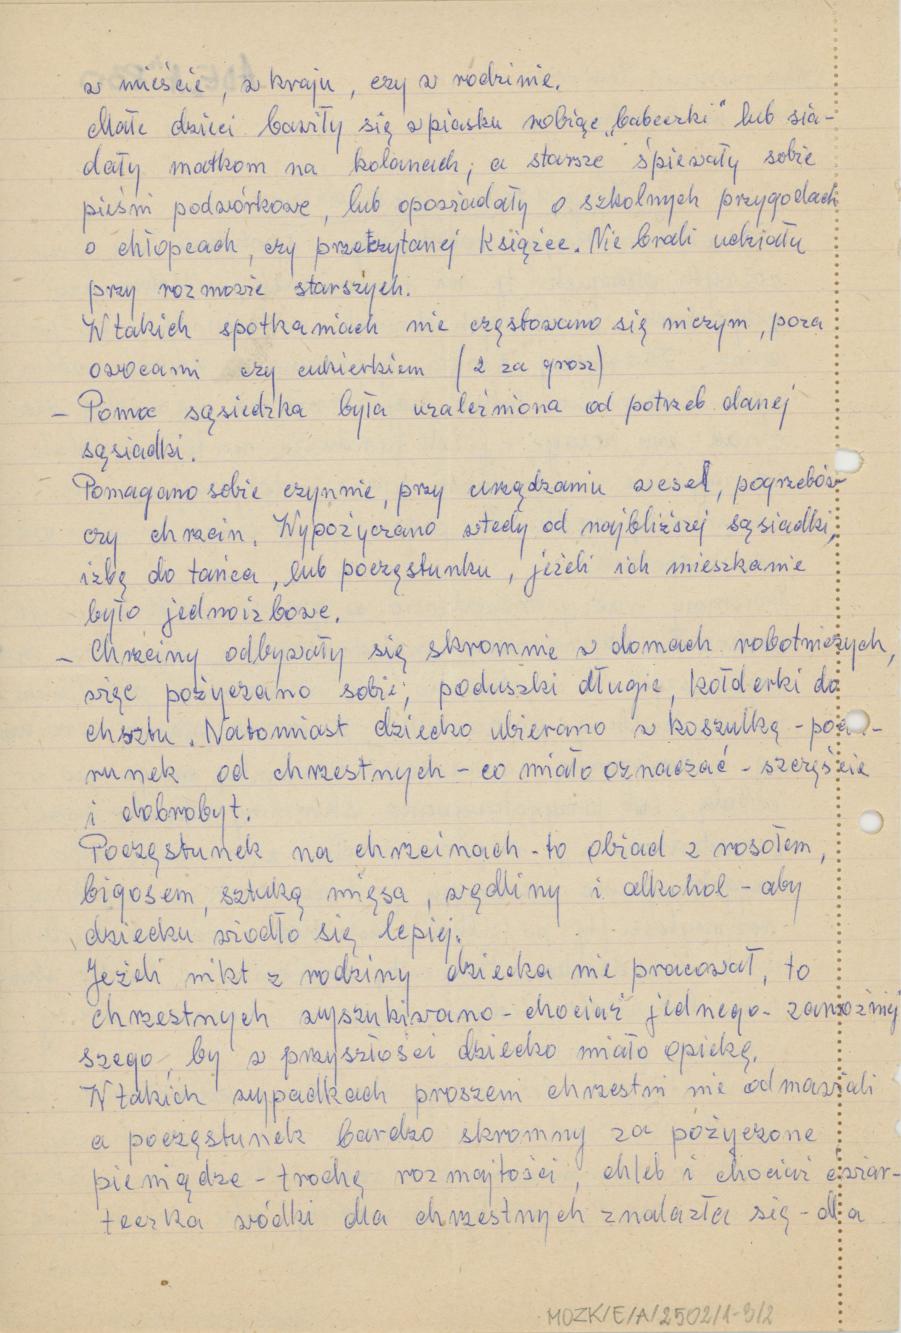 w mieście, w kraju, czy w rodzinie.
Małe dzieci bawiły się w piasku robiąc „babeczki" lub sia-
dały matkom na kolanach, a starsze śpiewały sobie
pieśni podwórkowe, lub opowiadały o szkolnych przygodach
o chłopcach, czy przeczytanej książce. Nie brali udziału
przy rozmowie starszych.
W takich spotkaniach nie częstowano się niczym, poza
owocami czy cukierkiem (2 za grosz)
– Pomoc sąsiedzka była uzależniona od potrzeb danej
sąsiadki.
Pomagano sobie czynnie, przy urządzaniu wesel, pogrzebów
czy chrzcin. Wypożyczano wtedy od najbliższej sąsiadki,
izbę do tańca, lub poczęstunku, jeżeli ich mieszkanie
było jednoizbowe.
– Chrzciny odbywały się skromnie w domach robotniczych,
więc pożyczano sobie, poduszki długie, kołderki do
chsztu. Natomiast dziecko ubierano w koszulkę – poda-
runek od chrzestnych – co miało oznaczać – szczęście
i dobrobyt.
Poczęstunek na chrzcinach – to obiad z rosołem,
bigosem, sztuką mięsa, wędliny i alkohol – aby
dziecku wiodło się lepiej.
Jeżeli nikt z rodziny dziecka nie pracował, to
chrzestnych wyszukiwano – chociaż jednego – zamożniej
szego, by w przyszłości dziecko miało opiekę.
W takich wypadkach proszeni chrzestni nie odmawiali
a poczęstunek bardzo skromny za pożyczone
pieniądze – trochę rozmajtości, chleb i chociaż ćwiar-
teczka wódki dla chrzestnych znalazła się – dla
MOZK/E/A/2502/1-3/2